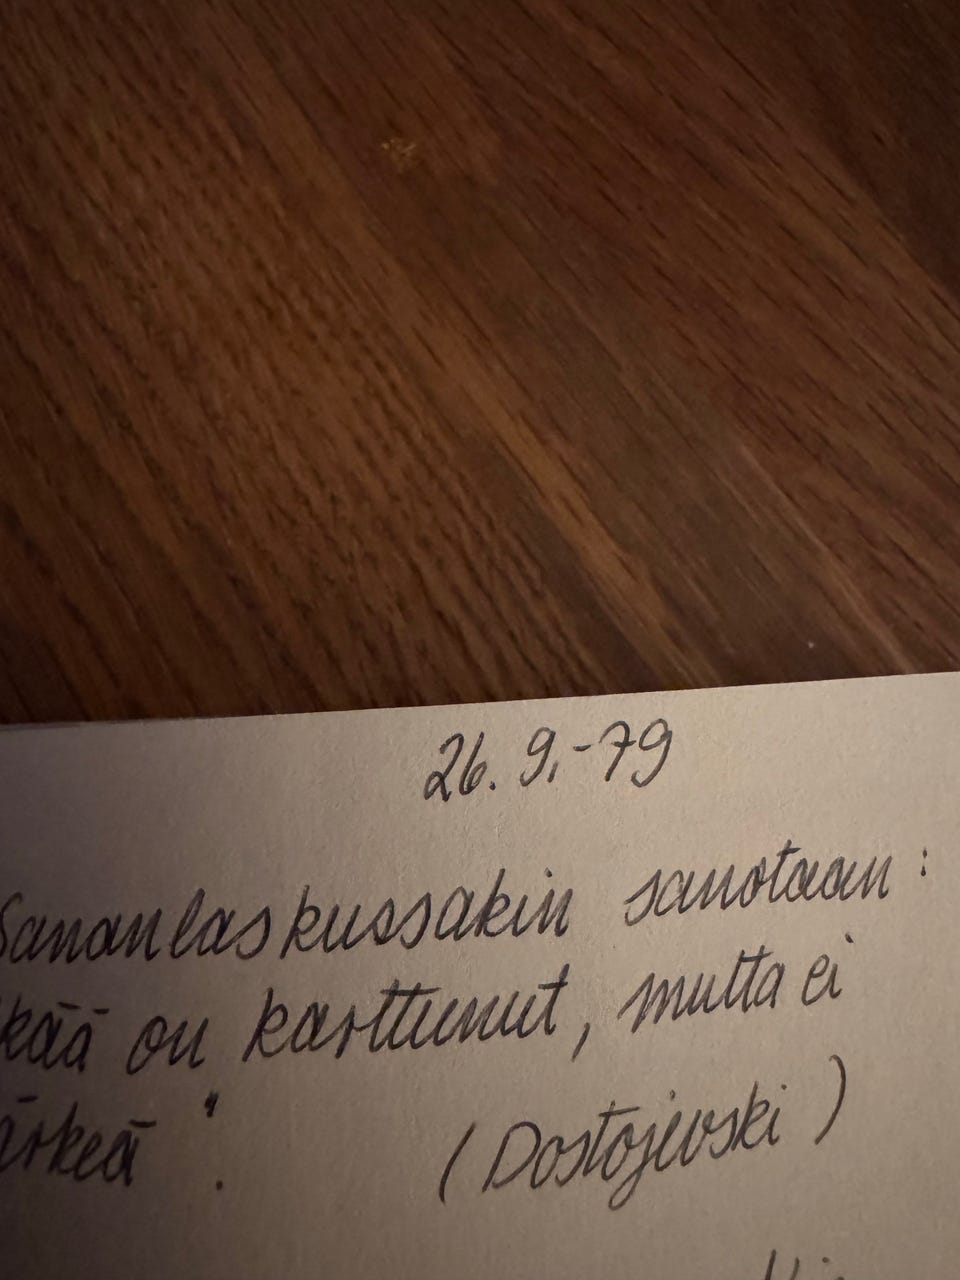 26. 9.-79
Sananlaskussakin sanotaan :
kää on karttunut, mutta ei
ärkeä".
(Dostojevski)